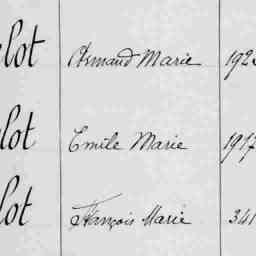 lot Armand Marie 192
lot Emile Marie 1917
lot François Marie 341